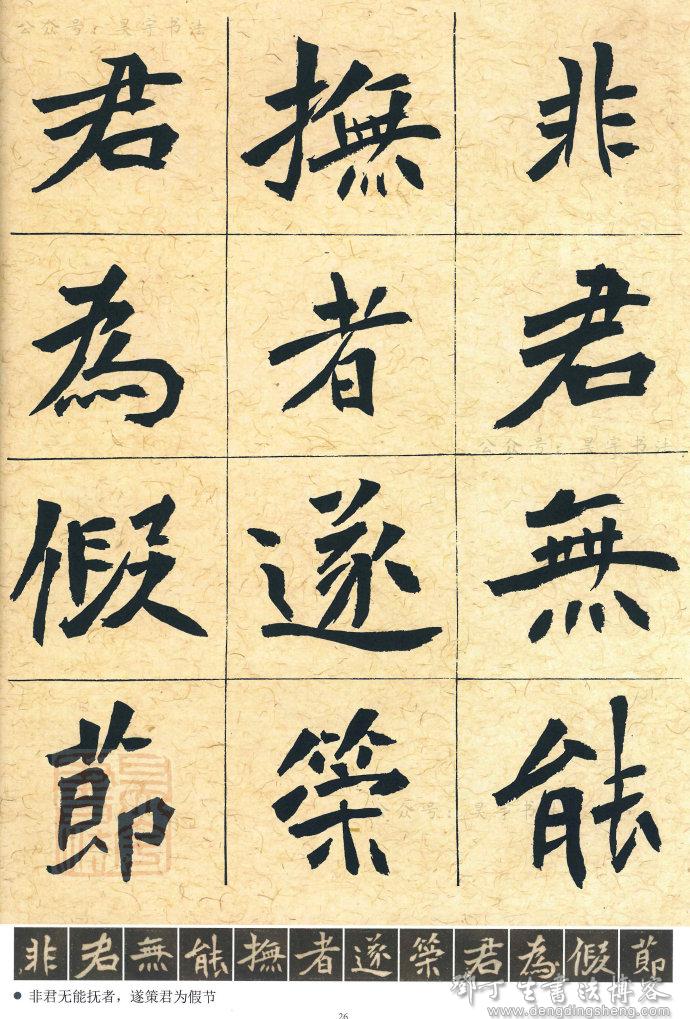 公众号：昊宇书法
非君無能
撫者遂策
君為假節
公众号：昊宇书法
公众号：昊宇书
非君無能撫者遂策君為假節
非君无能抚者，遂策君为假节
26
邓丁生書法博客
www.dengdingsheng.com